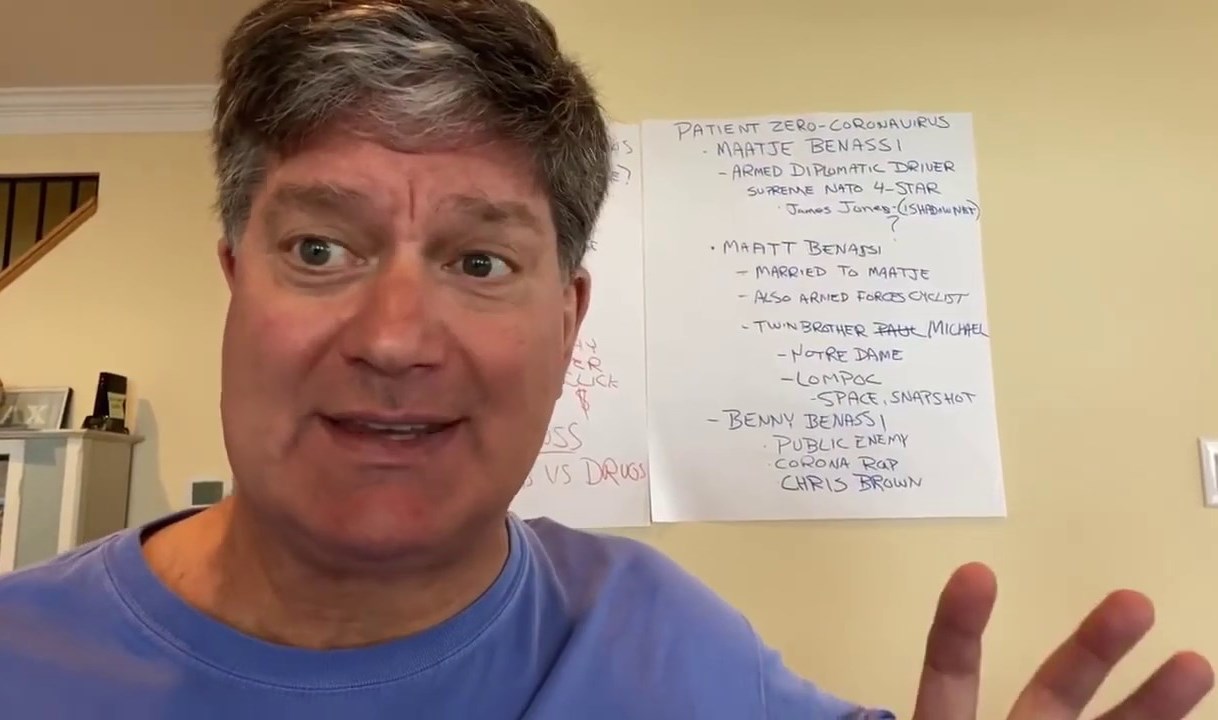 PATIENT ZERO-CORONAVIRUS
· MAATJE BENASSI
- ARMED DIPLOMATIC DRIVER
SUPREME NATO 4-STAR
· James Jones-(ISHADOWNET)
?
· MAATT BENASSI
- MARRIED TO MAATJE
- ALSO ARMED FORCES CYCLIST
- TWIN BROTHER PAUL MICHAEL
- NOTRE DAME
- LOMPOC
- SPACE, SNAPSHOT
- BENNY BENASSI
· PUBLIC ENEMY
· CORONA RAP
CHRIS BROWN
?
$
VS DRUGS